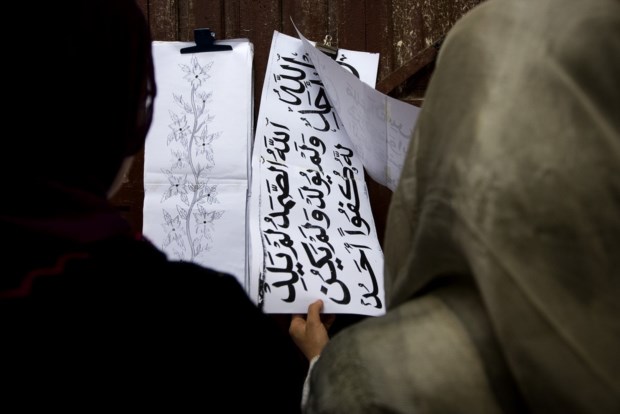 اَللّٰهُ
اَحَدٌ
اَللّٰهُ الصَّمَدُ لَمْ يَلِدْ
وَلَمْ يُولَدْ وَلَمْ يَكُنْ
لَّهُ كُفُوًا اَحَدٌ